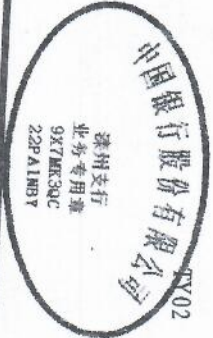 中国银行股份有限公司
滦州支行
业务专用章
9X7MK3QC
22PA1MBY
TY02